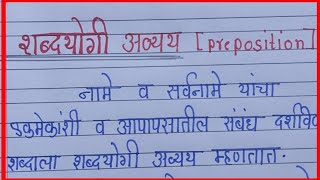 शब्दयोगी अव्यय [preposition]
नामे व सर्वनामे यांचा
एकमेकांशी व आपापसातील संबंध दर्शवि
शब्दाला शब्दयोगी अव्यय म्हणतात.